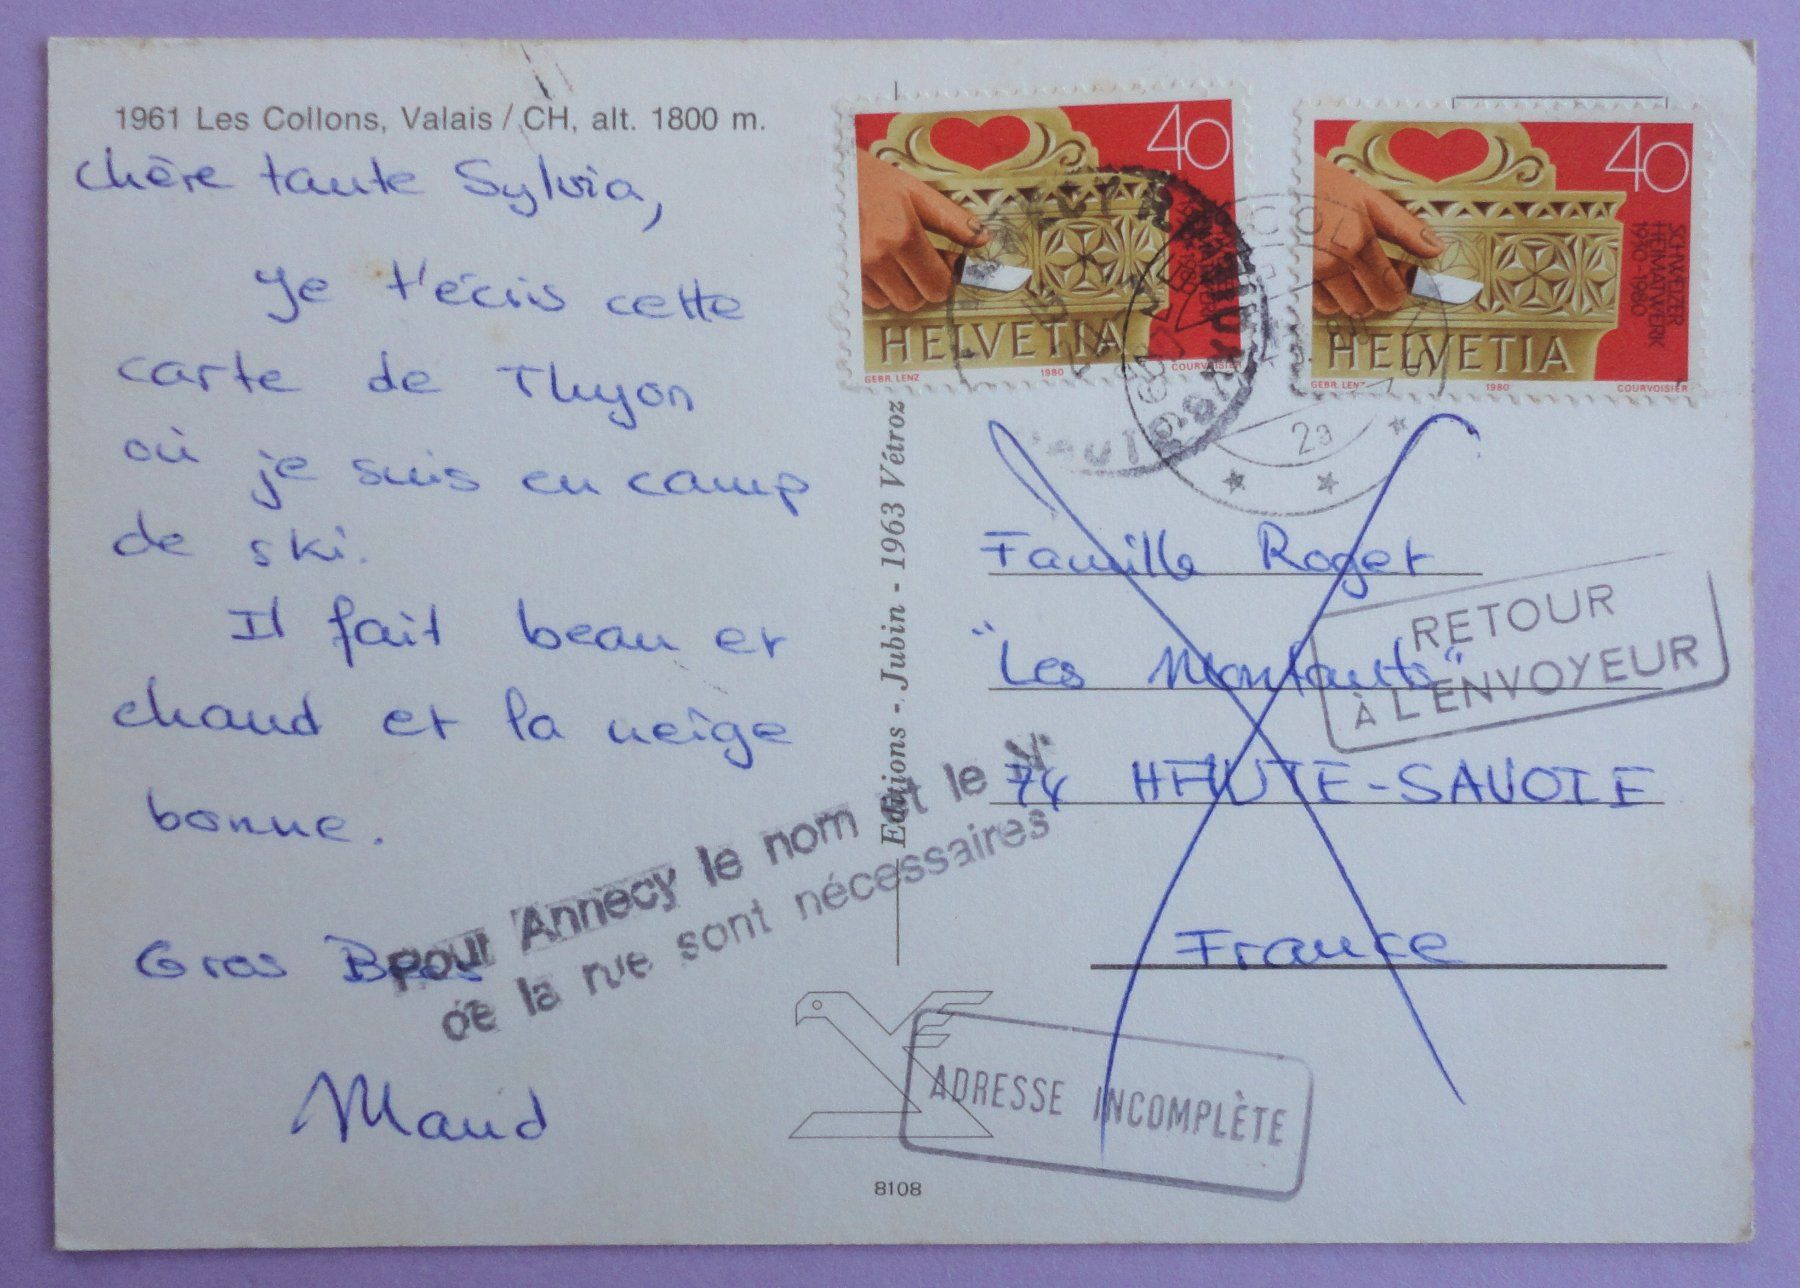 1961 Les Collons, Valais / CH, alt. 1800 m.
Chère tante Sylvia,
Je t'écris cette
carte de Thyon
où je suis en camp
de ski.
Il fait beau et
chaud et la neige
bonne.
Gros Becs
Maud
pour Annecy le nom et le N°
de la rue sont nécessaires
Editions - Jubin - 1963 Vétroz
8108
40
SCHWEIZER
HEIMATWERK
1930-1980
HELVETIA
GEBR. LENZ 1980 COURVOISIER
40
SCHWEIZER
HEIMATWERK
1930-1980
HELVETIA
GEBR. LENZ 1980 COURVOISIER
Famille Roget
"Les Montants"
74 HAUTE-SAVOIE
France
RETOUR
À L'ENVOYEUR
ADRESSE INCOMPLÈTE